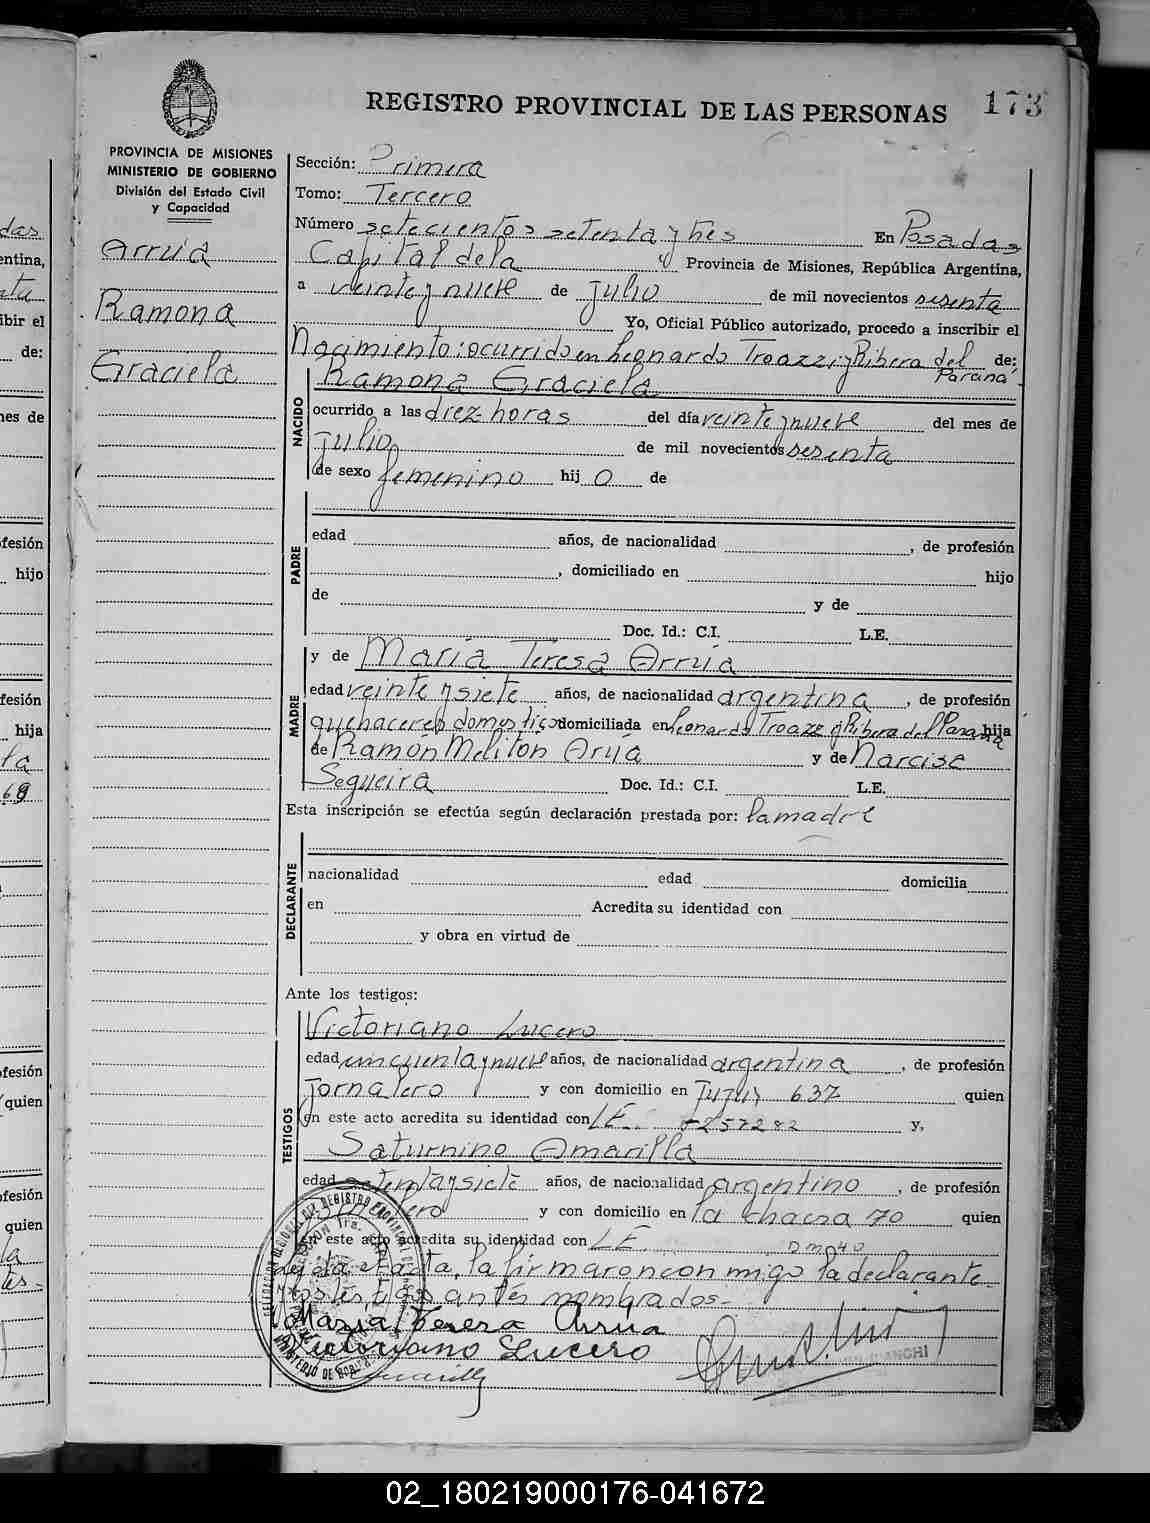 REGISTRO PROVINCIAL DE LAS PERSONAS 173
PROVINCIA DE MISIONES
MINISTERIO DE GOBIERNO
División del Estado Civil
y Capacidad
Arrúa
Ramona
Graciela
Sección: Primera
Tomo: Tercero
Número setecientos setenta y tres En Posadas
Capital de la Provincia de Misiones, República Argentina,
a veinte y nueve de julio de mil novecientos sesenta
Yo, Oficial Público autorizado, procedo a inscribir el
Nacimiento: ocurrido en Leonardo Troazzi y Ribera del Paraná de:
NACIDO
Ramona Graciela
ocurrido a las diez horas del día veinte y nueve del mes de
julio de mil novecientos sesenta
de sexo femenino hij o de
PADRE
edad años, de nacionalidad , de profesión
, domiciliado en hijo
de y de
Doc. Id.: C.I. L.E.
MADRE
y de María Teresa Arrúa
edad veinte y siete años, de nacionalidad argentina , de profesión
quehaceres domesticos domiciliada en Leonardo Troazzi y Ribera del Parana hija
de Ramón Meliton Arúa y de Narcisa
Segueira Doc. Id.: C.I. L.E.
Esta inscripción se efectúa según declaración prestada por: la madre
DECLARANTE
nacionalidad edad domicilia
en Acredita su identidad con
y obra en virtud de
Ante los testigos:
TESTIGOS
Victoriano Lucero
edad cincuenta y nueve años, de nacionalidad argentina , de profesión
Jornalero y con domicilio en Jujuy 637 quien
en este acto acredita su identidad con LE. y,
Saturnino Amarilla
edad setenta y siete años, de nacionalidad argentino , de profesión
y con domicilio en la chacra 70 quien
en este acto acredita su identidad con LE.
el acta, la firmaron conmigo la declarante
y los testigos antes nombrados.-
María Teresa Arrúa
Victoriano Lucero
02_180219000176-041672